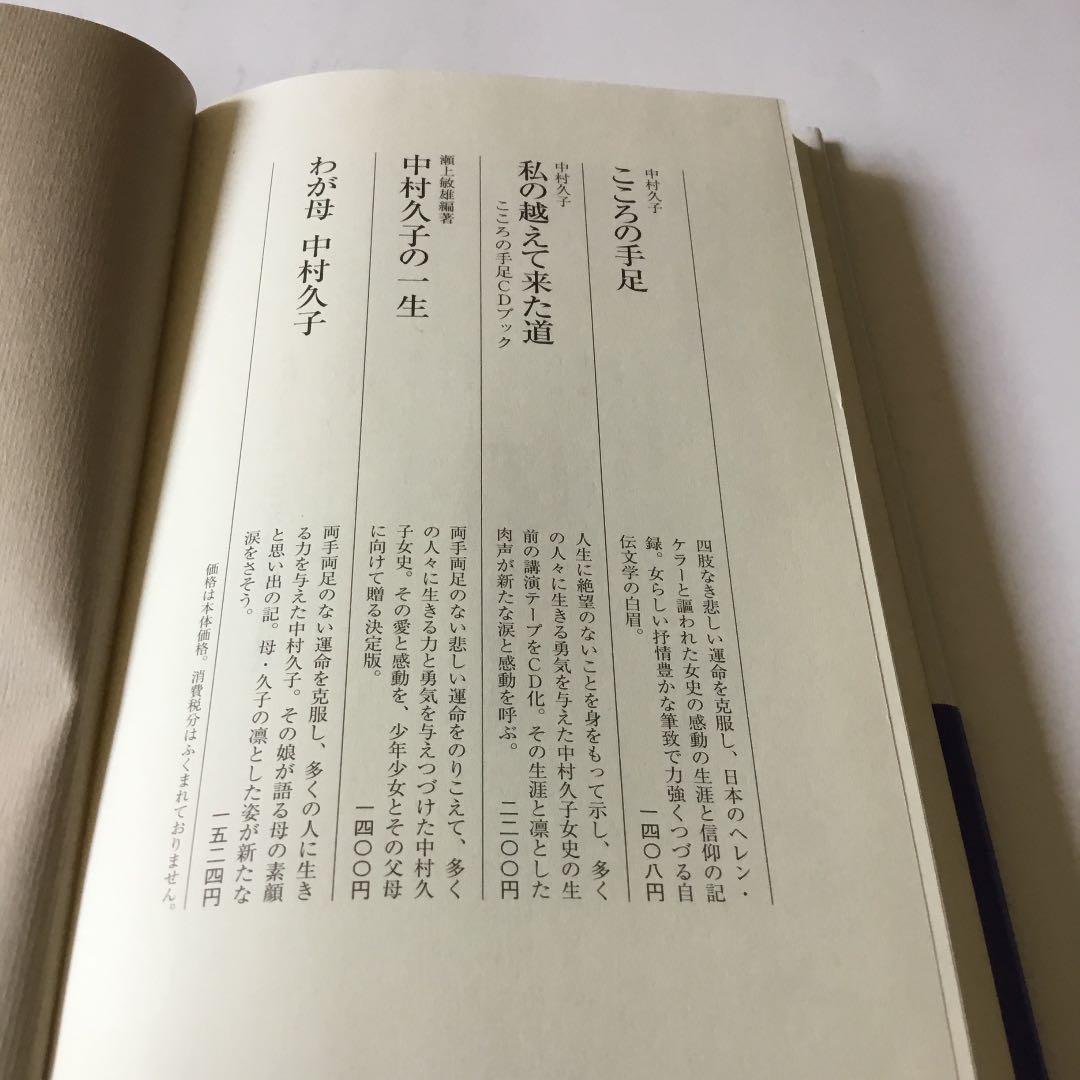 中村久子
こころの手足
四肢なき悲しい運命を克服し、日本のヘレン・
ケラーと謳われた女史の感動の生涯と信仰の記
録。女らしい抒情豊かな筆致で力強くつづる自
伝文学の白眉。
一四〇八円
中村久子
私の越えて来た道
こころの手足CDブック
人生に絶望のないことを身をもって示し、多く
の人々に生きる勇気を与えた中村久子女史の生
前の講演テープをCD化。その生涯と凛とした
肉声が新たな涙と感動を呼ぶ。
二二〇〇円
瀬上敏雄編著
中村久子の一生
両手両足のない悲しい運命をのりこえて、多く
の人々に生きる力と勇気を与えつづけた中村久
子女史。その愛と感動を、少年少女とその父母
に向けて贈る決定版。
一四〇〇円
わが母 中村久子
両手両足のない運命を克服し、多くの人に生き
る力を与えた中村久子。その娘が語る母の素顔
と思い出の記。母・久子の凛とした姿が新たな
涙をさそう。
一五二四円
価格は本体価格。消費税分はふくまれておりません。